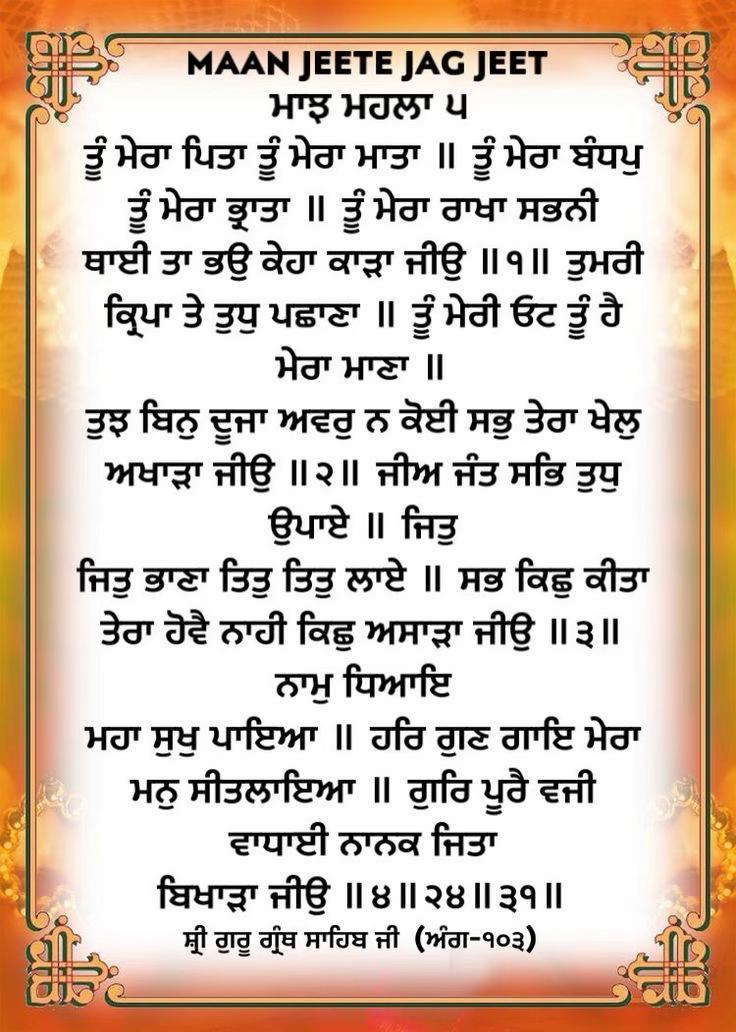 MAAN JEETE JAG JEET
ਮਾਝ ਮਹਲਾ ੫
ਤੂੰ ਮੇਰਾ ਪਿਤਾ ਤੂੰ ਮੇਰਾ ਮਾਤਾ ॥ ਤੂੰ ਮੇਰਾ ਬੰਧਪੁ
ਤੂੰ ਮੇਰਾ ਭ੍ਰਾਤਾ ॥ ਤੂੰ ਮੇਰਾ ਰਾਖਾ ਸਭਨੀ
ਥਾਈ ਤਾ ਭਉ ਕੇਹਾ ਕਾੜਾ ਜੀਉ ॥੧॥ ਤੁਮਰੀ
ਕ੍ਰਿਪਾ ਤੇ ਤੁਧੁ ਪਛਾਣਾ ॥ ਤੂੰ ਮੇਰੀ ਓਟ ਤੂੰ ਹੈ
ਮੇਰਾ ਮਾਣਾ ॥
ਤੁਝ ਬਿਨੁ ਦੂਜਾ ਅਵਰੁ ਨ ਕੋਈ ਸਭੁ ਤੇਰਾ ਖੇਲੁ
ਅਖਾੜਾ ਜੀਉ ॥੨॥ ਜੀਅ ਜੰਤ ਸਭਿ ਤੁਧੁ
ਉਪਾਏ ॥ ਜਿਤੁ
ਜਿਤੁ ਭਾਣਾ ਤਿਤੁ ਤਿਤੁ ਲਾਏ ॥ ਸਭ ਕਿਛੁ ਕੀਤਾ
ਤੇਰਾ ਹੋਵੈ ਨਾਹੀ ਕਿਛੁ ਅਸਾੜਾ ਜੀਉ ॥੩॥
ਨਾਮੁ ਧਿਆਇ
ਮਹਾ ਸੁਖੁ ਪਾਇਆ ॥ ਹਰਿ ਗੁਣ ਗਾਇ ਮੇਰਾ
ਮਨੁ ਸੀਤਲਾਇਆ ॥ ਗੁਰਿ ਪੂਰੈ ਵਜੀ
ਵਾਧਾਈ ਨਾਨਕ ਜਿਤਾ
ਬਿਖਾੜਾ ਜੀਉ ॥੪॥੨੪॥੩੧॥
ਸ਼੍ਰੀ ਗੁਰੂ ਗ੍ਰੰਥ ਸਾਹਿਬ ਜੀ (ਅੰਗ-੧੦੩)